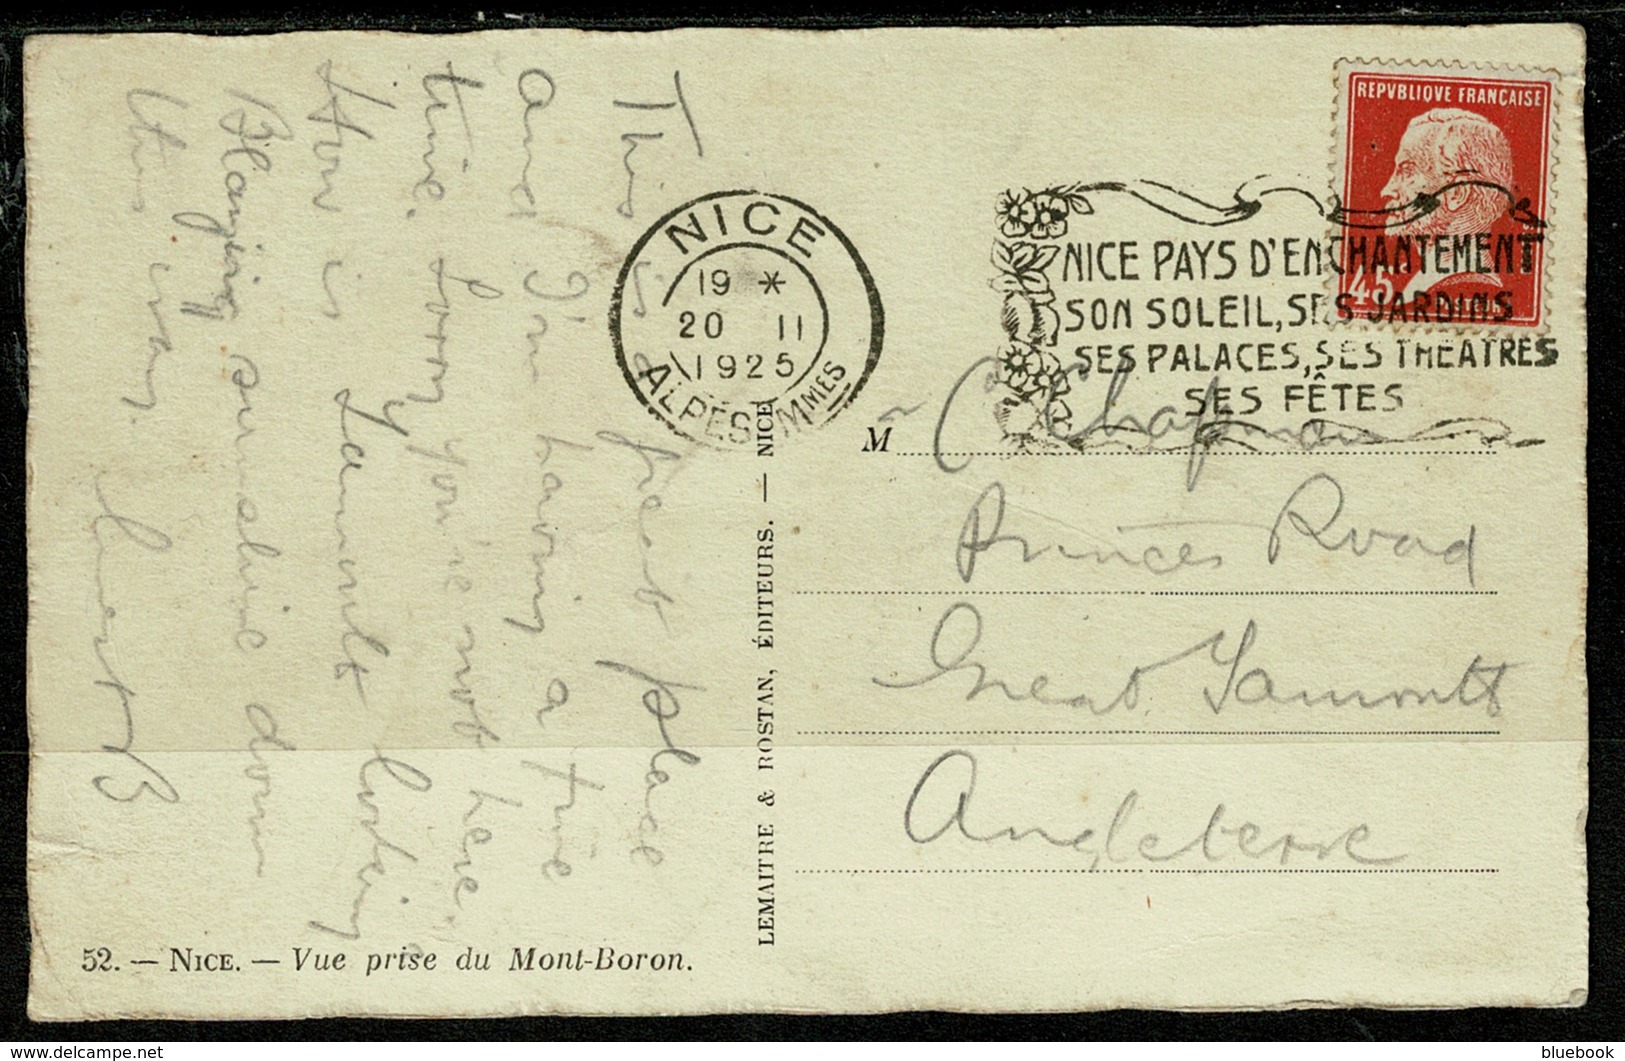 This is a great place
and I'm having a fine
time. Sorry you're not here,
How is Yarmouth looking
Blazing sunshine down
this way.
Ernest B
52. — NICE. — Vue prise du Mont-Boron.
LEMAITRE & ROSTAN, ÉDITEURS. — NICE
NICE
19 *
20 II
1925
ALPES MMMES
REPVBLIQVE FRANÇAISE
45c
NICE PAYS D'ENCHANTEMENT
SON SOLEIL, SES JARDINS
SES PALACES, SES THEATRES
SES FÊTES
M r C Chapman
Princes Road
Great Yarmouth
Angleterre
delcampe.net
bluebook